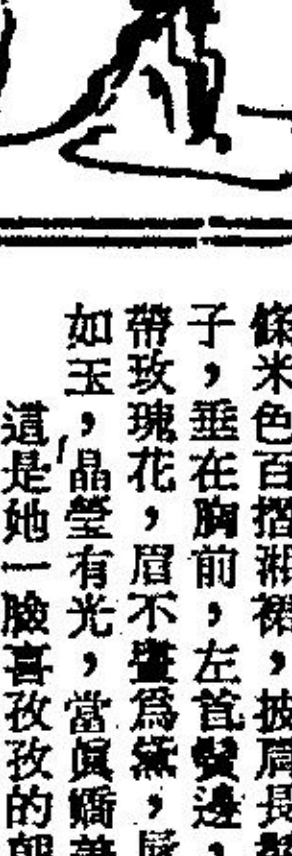 條米色百摺湘裙，披肩長髮
子，垂在胸前，左首鬢邊，
帶玫瑰花，眉不畫爲黛，唇
如玉，晶瑩有光，當眞嬌美
這是她一臉喜孜孜的朝